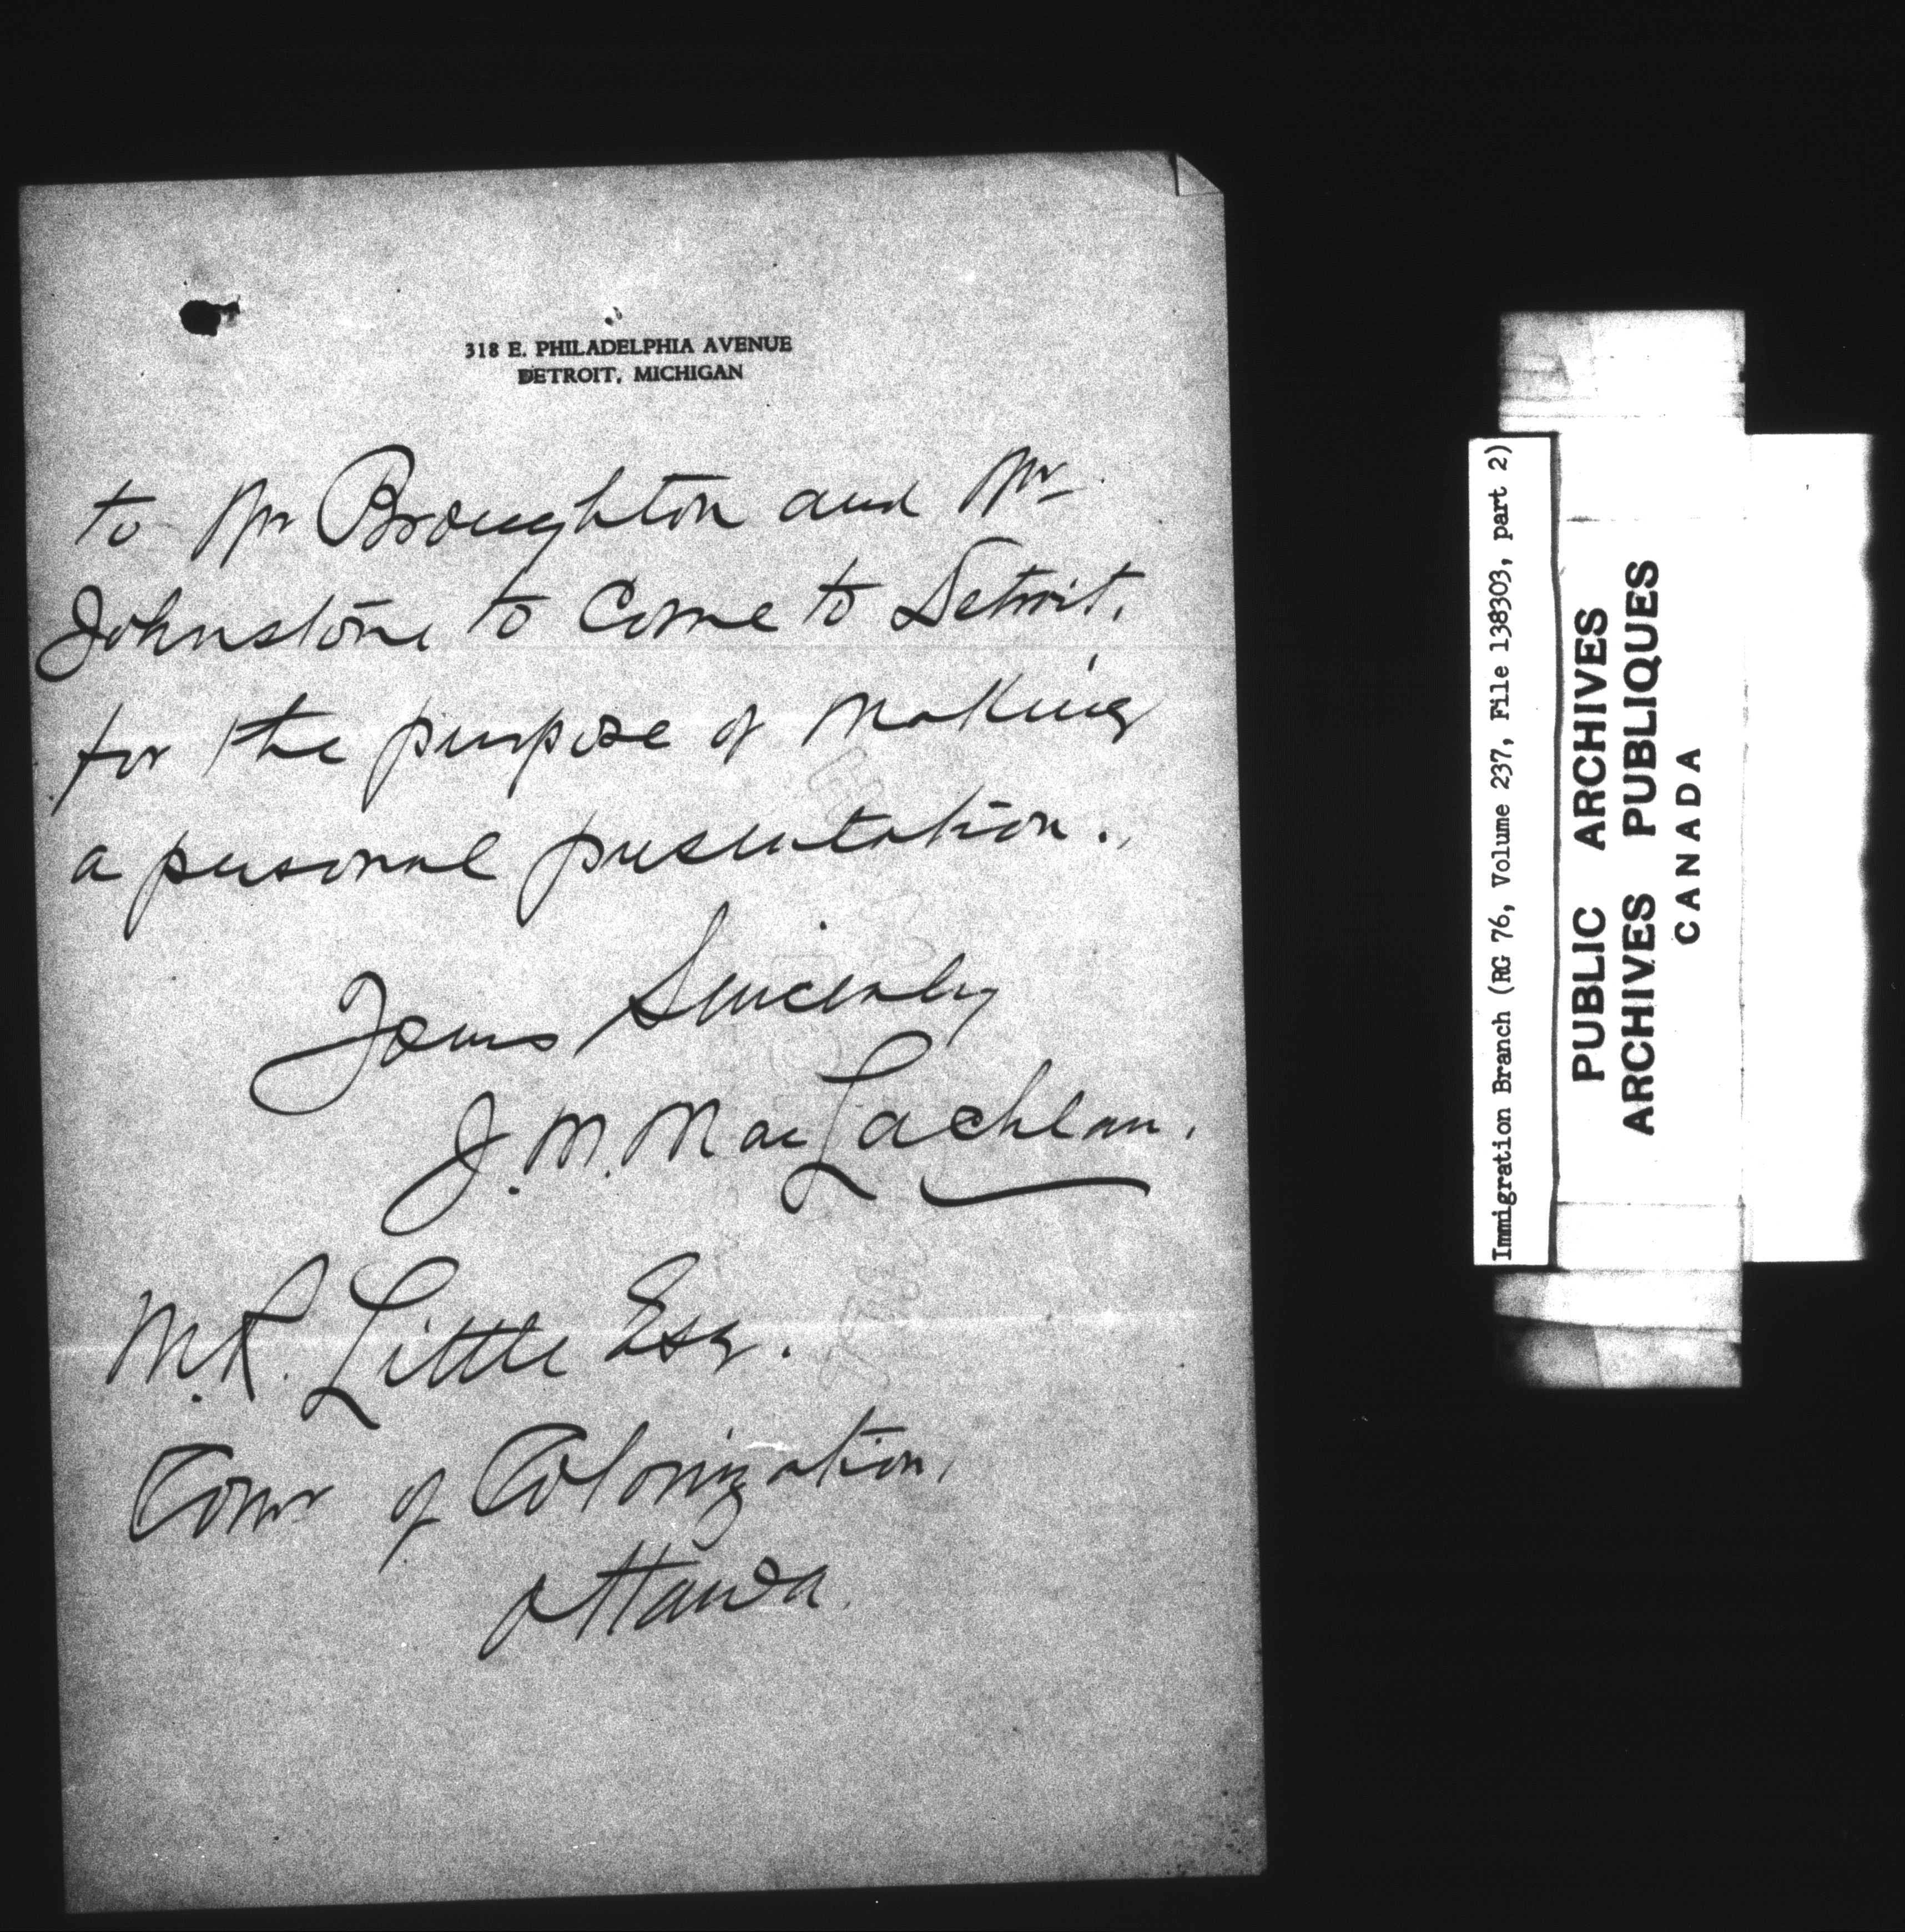 318 E. PHILADELPHIA AVENUE
DETROIT, MICHIGAN
to Mr Broughton and Mr
Johnstone to Come to Detroit.
for the purpose of making
a personal presentation.
Yours Sincerely
J. M. MacLachlan.
M.R. Little Esq.
Comr of Colonization,
Ottawa.
Immigration Branch (RG 76, Volume 237, File 138303, part 2)
PUBLIC ARCHIVES
ARCHIVES PUBLIQUES
CANADA